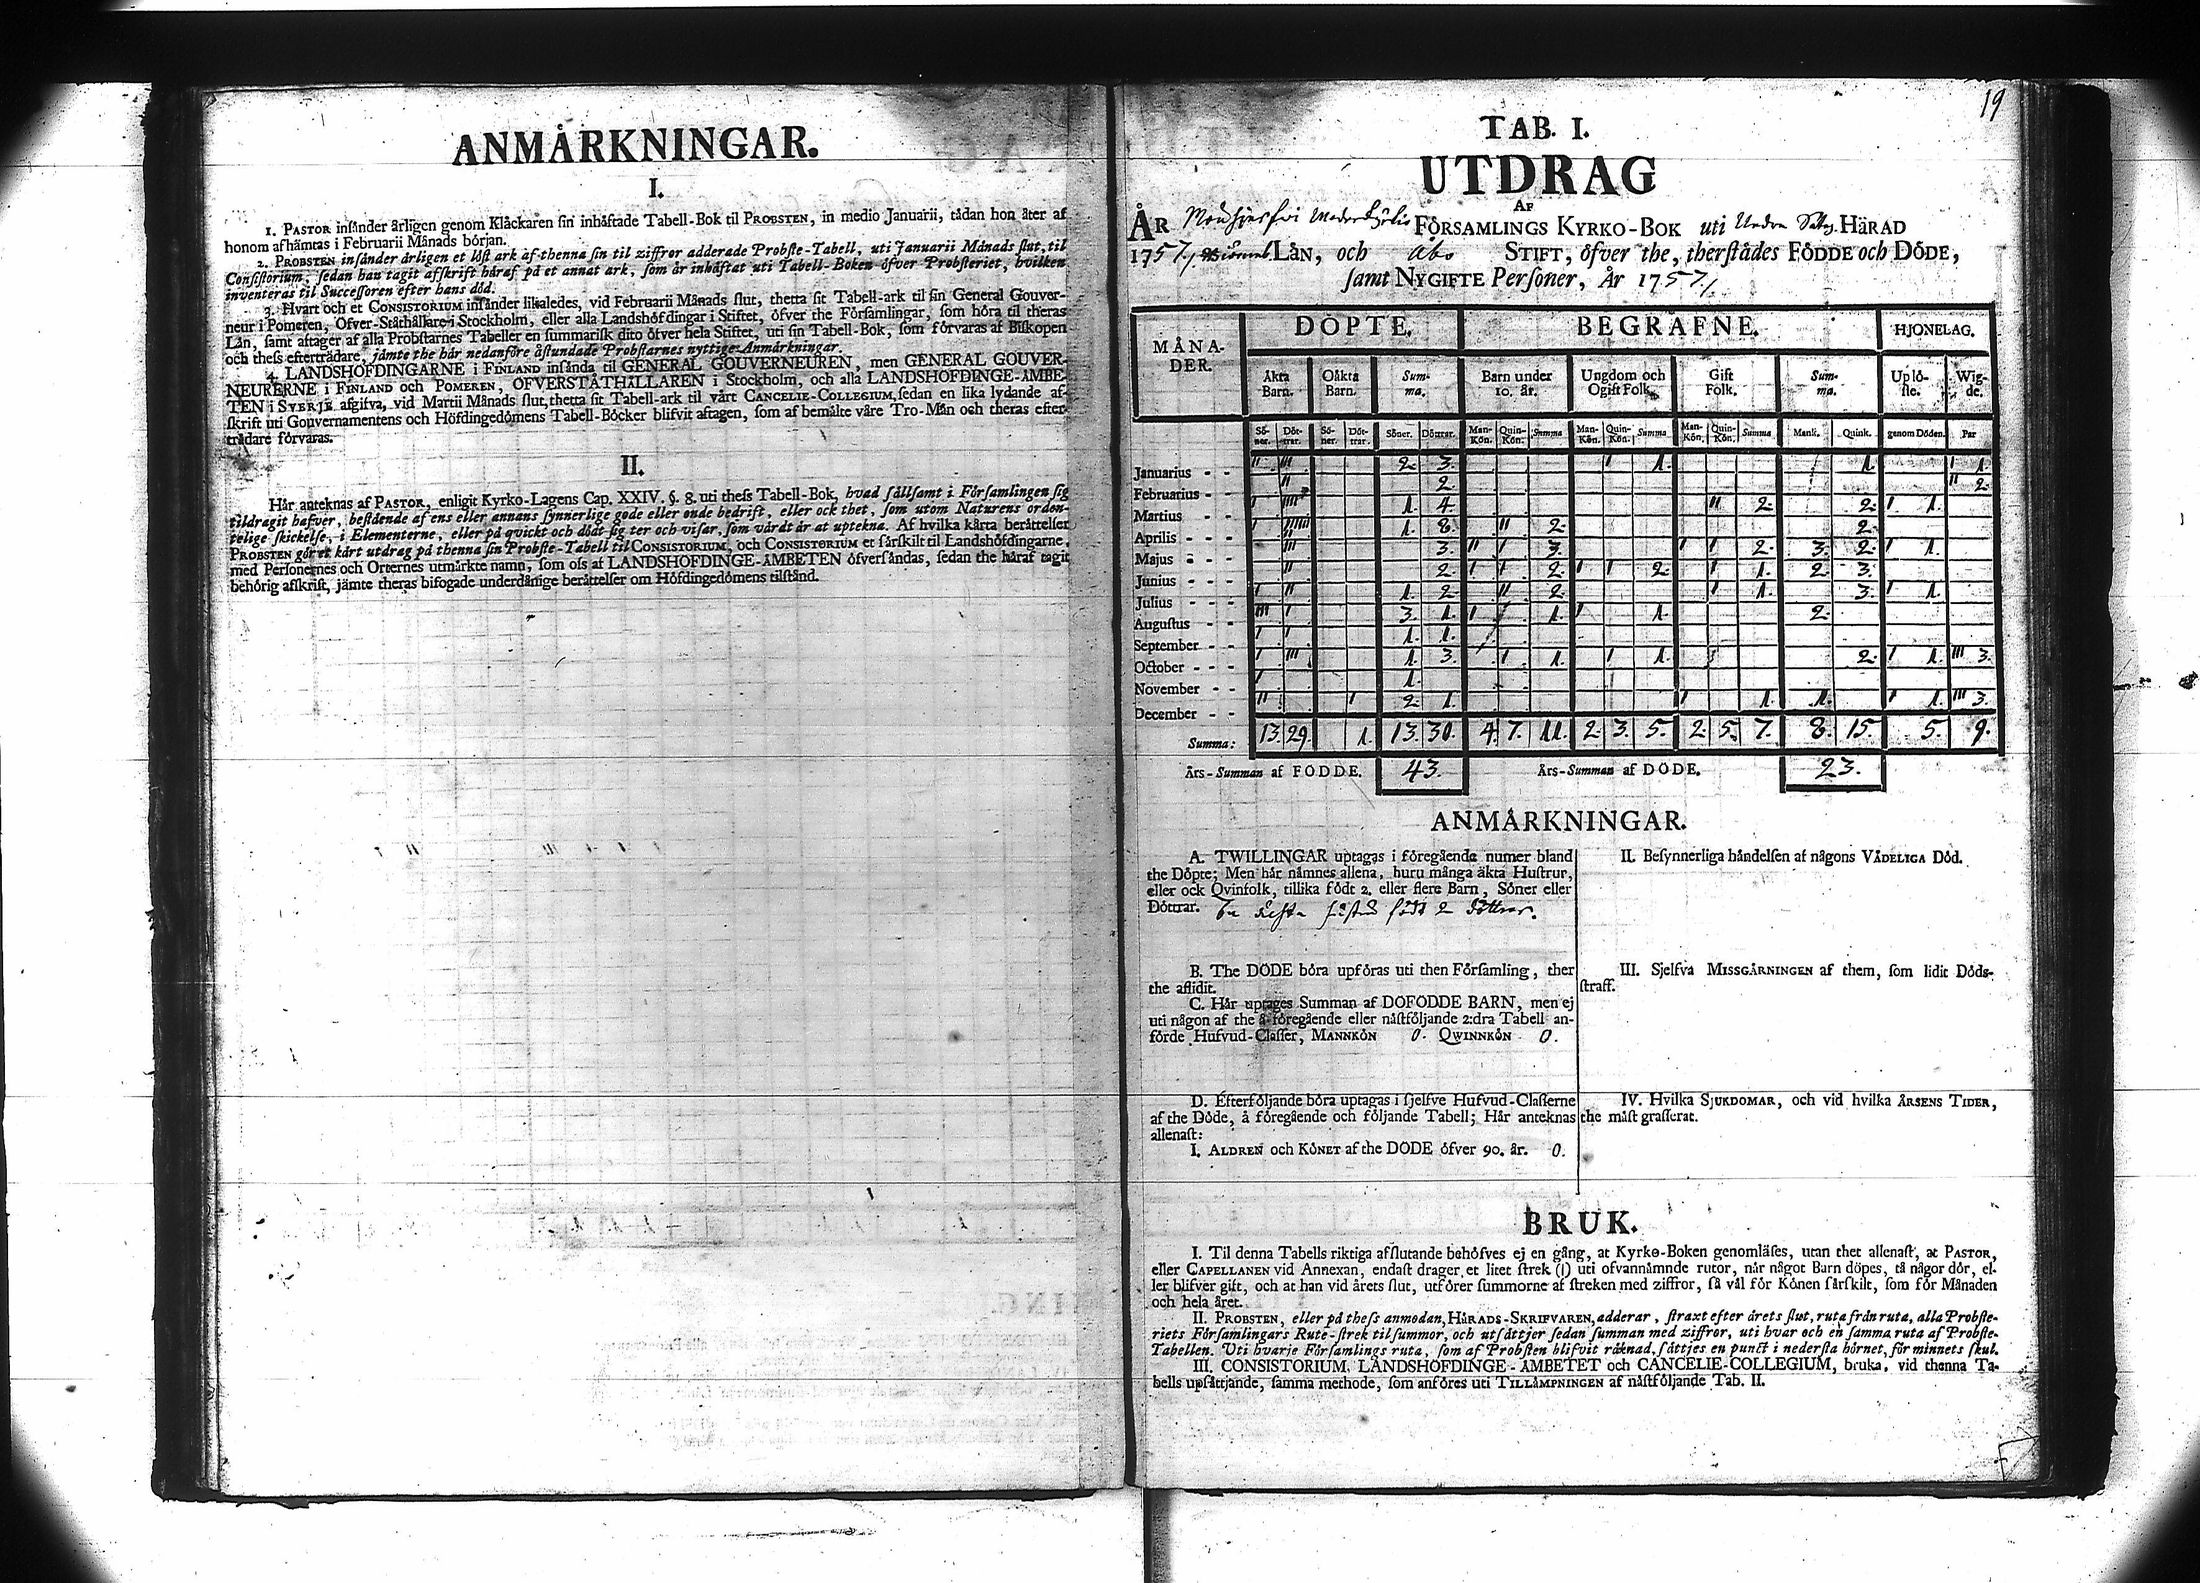 ANMÅRKNINGAR.
I.
1. PASTOR insånder årligen genom Klåckaren sin inhåftade Tabell-Bok til PROBSTEN, in medio Januarii, tådan hon åter af
honom afhåmtas i Februarii Månads bórjan.
2. PROBSTEN insånder årligen et lóst ark af thenna sin til ziffror adderade Probste-Tabell, uti Januarii Månads slut, til
Consistorium; sedan han tagit afskrift håraf på et annat ark, som år inhåftat uti Tabell-Boken ófver Probsteriet, hvilken
inventeras til Successoren efter hans dód.
3. Hvart och et CONSISTORIUM insånder likaledes, vid Februarii Månads slut, thetta sit Tabell-ark til sin General Gouver-
neur i Pomeren, Ófver-Ståthållare i Stockholm, eller alla Landshófdingar i Stiftet, ófver the Fórsamlingar, som hóra til theras
Lån, samt aftager af alla Probstarnes Tabeller en summarisk dito ófver hela Stiftet, uti sin Tabell-Bok, som fórvaras af Biskopen
och thess eftertrådare, jåmte the hår nedanfóre åstundade Probstarnes nyttige Anmårkningar.
4. LANDSHÓFDINGARNE i FINLAND insånda til GENERAL GOUVERNEUREN, men GENERAL GOUVER-
NEURERNE i FINLAND och POMEREN, ÓFVERSTÅTHÅLLAREN i Stockholm, och alla LANDSHÓFDINGE-ÅMBE-
TEN i SVERJE afgifva, vid Martii Månads slut, thetta sit Tabell-ark til vårt CANCELIE-COLLEGIUM, sedan en lika lydande af-
skrift uti Gouvernamentens och Hófdingedómens Tabell-Bócker blifvit aftagen, som af bemålte våre Tro-Mån och theras efter-
trådare fórvaras.
II.
Hår anteknas af PASTOR, enligit Kyrko-Lagens Cap. XXIV. §. 8. uti thess Tabell-Bok, hvad sållsamt i Fórsamlingen sig
tildragit hafver, bestående af ens eller annans synnerlige gode eller onde bedrift, eller ock thet, som utom Naturens orden-
telige skickelse, i Elementerne, eller på qvickt och dódt sig ter och visar, som vårdt år at uptekna. Af hvilka kårta beråttelser
PROBSTEN gór et kårt utdrag på thenna sin Probste-Tabell til CONSISTORIUM, och CONSISTORIUM et sårskilt til Landshófdingarne,
med Personernes och Orternes utmårkte namn, som oss af LANDSHÓFDINGE-ÅMBETEN ófversåndas, sedan the håraf tagit
behórig afskrift, jåmte theras bifogade underdånige beråttelser om Hófdingedómens tilstånd.
19
TAB. I.
UTDRAG
AF
ÅR FÓRSAMLINGS KYRKO-BOK uti HÄRAD
1757. LÅN, och Åbo STIFT, ófver the, therstådes FÓDDE och DÓDE,
samt NYGIFTE Personer, År 1757.
MÅNA-
DER. DÓPTE. BEGRAFNE. HJONELAG.
Åkta
Barn. Oåkta
Barn. Sum-
ma. Barn under
10. år. Ungdom och
Ogift Folk. Gift
Folk. Sum-
ma. Upló-
ste. Wig-
de.
Só-
ner. Dót-
trar. Só-
ner. Dót-
trar. Sóner. Dóttrar. Man-
Kón. Quin-
Kón. Summa Man-
Kón. Quin-
Kón. Summa Man-
Kón. Quin-
Kón. Summa Mank. Quink. genom Dóden. Par
Januarius - - II III 2. 3. I 1. 1. I 1.
Februarius - - II 2. II 2.
Martius - - I IIII 1. 4. II 2. 2. I 1.
Aprilis - - 1. 8. II 2. 2.
Majus - - III 3. II I 3. I I 2. 3. 2. I 1.
Junius - - - II 2. I I 2. I I 2. I 1. 2. 3.
Julius - - - I II 1. 2. II 2. I 1. 3. I 1.
Augustus - - III I 3. 1. I 1. I 1. 2.
September - - I I 1. 1.
October - - - I III 1. 3. I 1. I 1. 2. I 1. III 3.
November - - I 1.
December - - II I 2. 1. I 1. 1. I 1. III 3.
Summa: 13. 29. 1. 13. 30. 4. 7. 11. 2. 3. 5. 2. 5. 7. 8. 15. 5. 9.
Års-Summan af FÓDDE. 43. Års-Summan af DÓDE. 23.
ANMÅRKNINGAR.
A. TWILLINGAR uptagas i fóregående numer bland
the Dópte; Men hår nåmnes allena, huru många äkta Hustrur,
eller ock Qvinfolk, tillika fódt 2. eller flere Barn, Sóner eller
Dóttrar. födt 2 döttrar.
B. The DÓDE bóra upfóras uti then Fórsamling, ther
the aflidit.
C. Hår uptages Summan af DÓFÓDDE BARN, men ej
uti någon af the å fóregående eller nåstfóljande 2:dra Tabell an-
fórde Hufvud-Classer, MANNKÓN 0. QWINNKÓN 0.
D. Efterfóljande bóra uptagas i sjelfve Hufvud-Classerne
af the Dóde, å fóregående och fóljande Tabell; Hår anteknas
allenast:
I. ALDREN och KÓNET af the DÓDE ófver 90. år. 0.
II. Besynnerliga håndelsen af någons VÅDELIGA Dód.
III. Sjelfva MISSGÅRNINGEN af them, som lidit Dóds-
straff.
IV. Hvilka SJUKDOMAR, och vid hvilka ÅRSENS TIDER,
the måst grasserat.
BRUK.
I. Til denna Tabells riktiga afslutande behófves ej en gång, at Kyrko-Boken genomläses, utan thet allenast, at PASTOR,
eller CAPELLANEN vid Annexan, endast drager et litet strek (|) uti ofvannåmnde rutor, når något Barn dópes, tå någor dór, el-
ler blifver gift, och at han vid årets slut, utfórer summorne af streken med ziffror, så vål fór Kónen sårskilt, som fór Månaden
och hela året.
II. PROBSTEN, eller på thess anmodan, HÅRADS-SKRIFVAREN, adderar, straxt efter årets slut, ruta från ruta, alla Probste-
riets Fórsamlingars Rute-strek til summor, och utsåttjer sedan summan med ziffror, uti hvar och en samma ruta af Probste-
Tabellen. Uti hvarje Fórsamlings ruta, som af Probsten blifvit råknad, såttjes en punct i nedersta hórnet, fór minnets skul.
III. CONSISTORIUM, LANDSHÓFDINGE-ÅMBETET och CANCELIE-COLLEGIUM, bruka, vid thenna Ta-
bells upsåttjande, samma methode, som anfóres uti TILLÅMPNINGEN af nåstfóljande Tab. II.